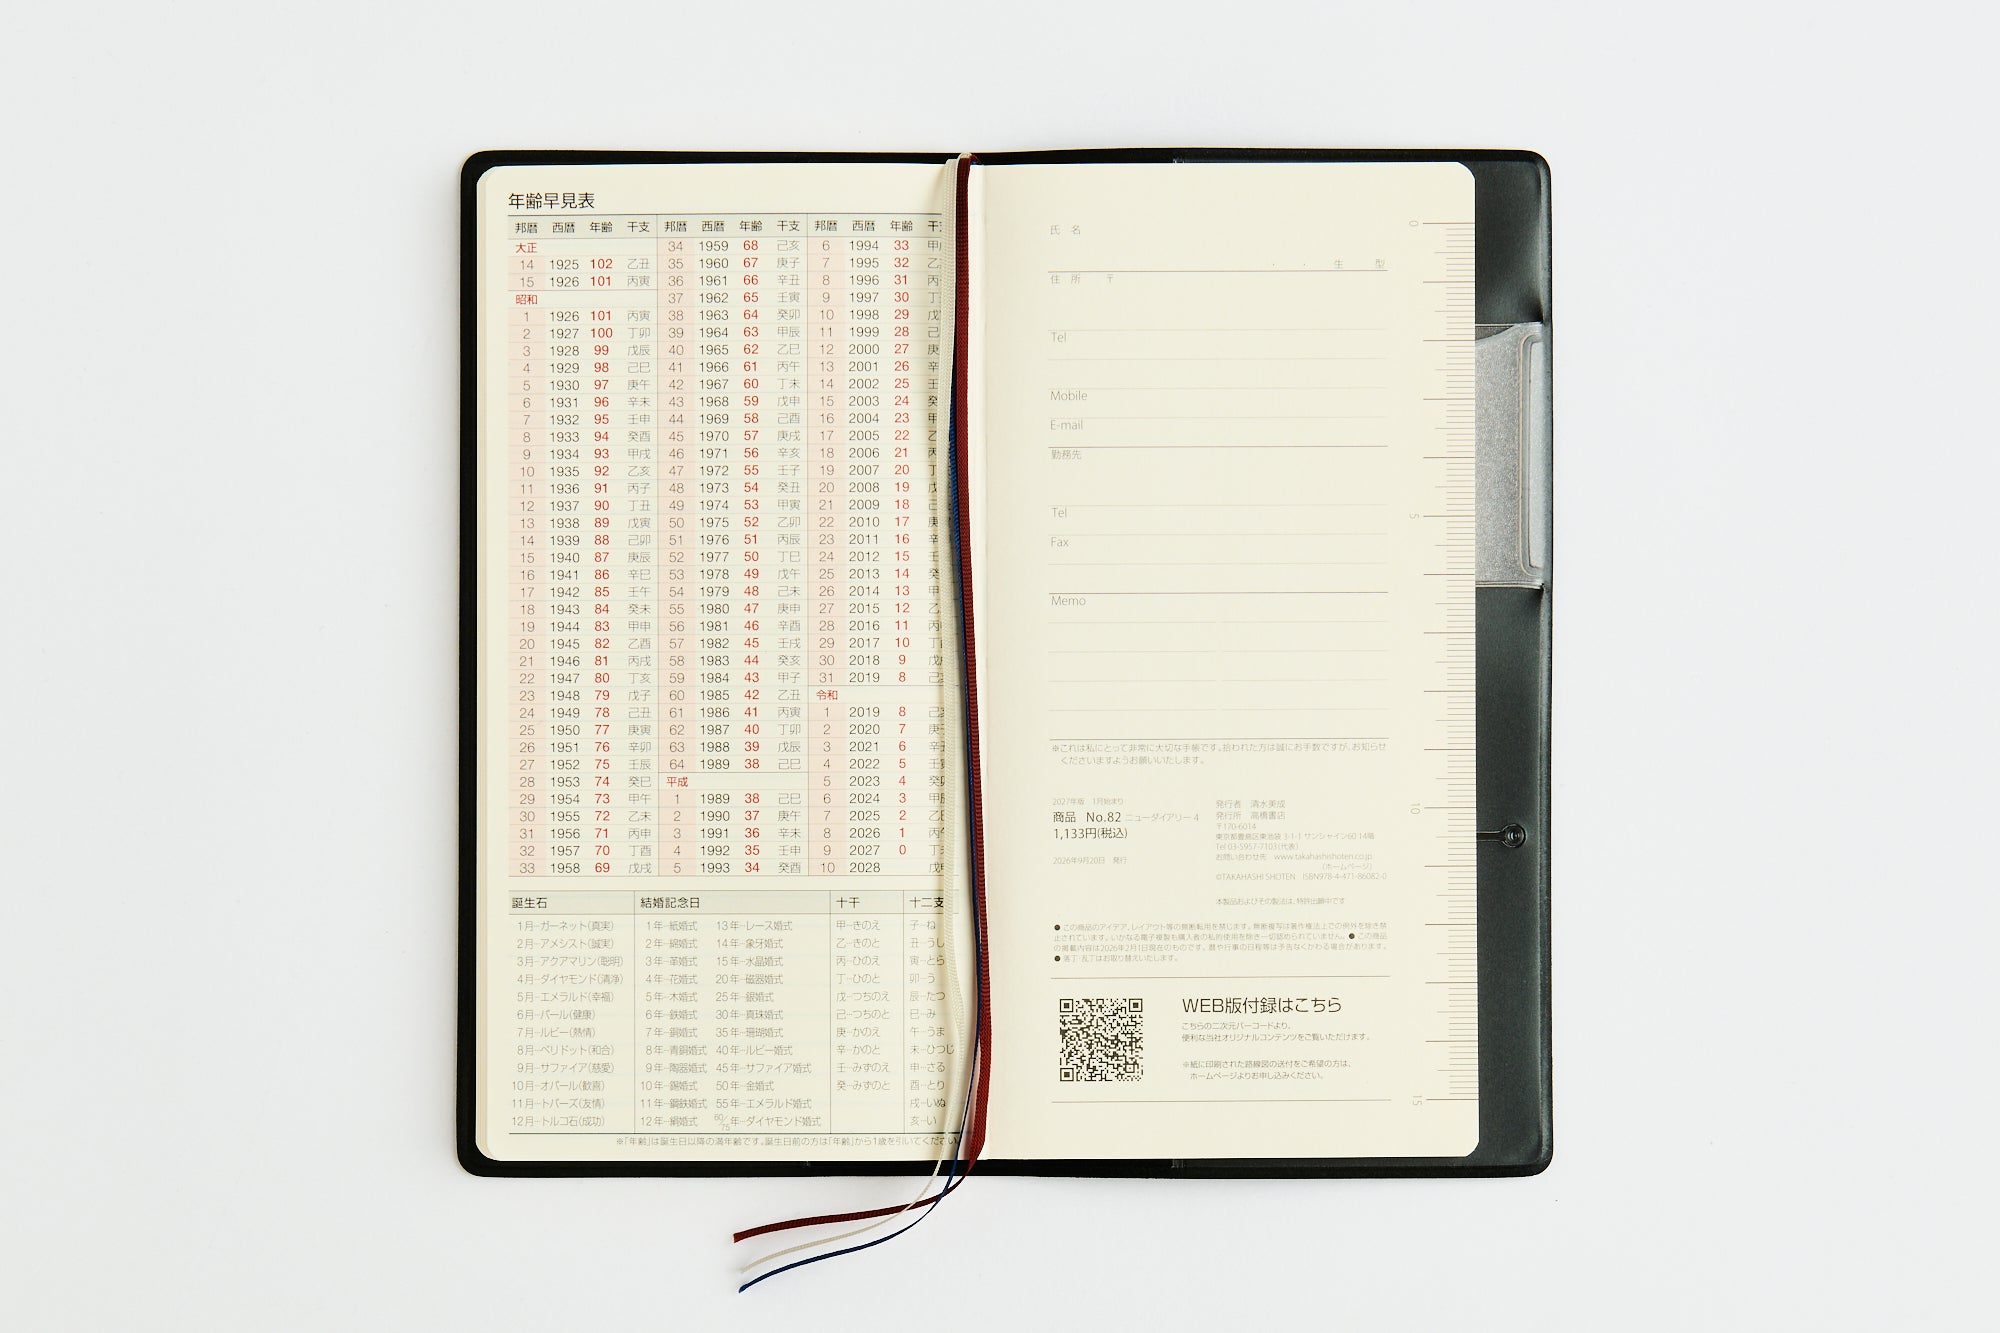 年齢早見表
邦暦 西暦 年齢 干支 邦暦 西暦 年齢 干支 邦暦 西暦 年齢
大正 34 1959 68 己亥 6 1994 33
14 1925 102 乙丑 35 1960 67 庚子 7 1995 32
15 1926 101 丙寅 36 1961 66 辛丑 8 1996 31
昭和 37 1962 65 壬寅 9 1997 30
1 1926 101 丙寅 38 1963 64 癸卯 10 1998 29
2 1927 100 丁卯 39 1964 63 甲辰 11 1999 28
3 1928 99 戊辰 40 1965 62 乙巳 12 2000 27
4 1929 98 己巳 41 1966 61 丙午 13 2001 26
5 1930 97 庚午 42 1967 60 丁未 14 2002 25
6 1931 96 辛未 43 1968 59 戊申 15 2003 24
7 1932 95 壬申 44 1969 58 己酉 16 2004 23
8 1933 94 癸酉 45 1970 57 庚戌 17 2005 22
9 1934 93 甲戌 46 1971 56 辛亥 18 2006 21
10 1935 92 乙亥 47 1972 55 壬子 19 2007 20
11 1936 91 丙子 48 1973 54 癸丑 20 2008 19
12 1937 90 丁丑 49 1974 53 甲寅 21 2009 18
13 1938 89 戊寅 50 1975 52 乙卯 22 2010 17
14 1939 88 己卯 51 1976 51 丙辰 23 2011 16
15 1940 87 庚辰 52 1977 50 丁巳 24 2012 15
16 1941 86 辛巳 53 1978 49 戊午 25 2013 14
17 1942 85 壬午 54 1979 48 己未 26 2014 13
18 1943 84 癸未 55 1980 47 庚申 27 2015 12
19 1944 83 甲申 56 1981 46 辛酉 28 2016 11
20 1945 82 乙酉 57 1982 45 壬戌 29 2017 10
21 1946 81 丙戌 58 1983 44 癸亥 30 2018 9
22 1947 80 丁亥 59 1984 43 甲子 31 2019 8
23 1948 79 戊子 60 1985 42 乙丑 令和
24 1949 78 己丑 61 1986 41 丙寅 1 2019 8
25 1950 77 庚寅 62 1987 40 丁卯 2 2020 7
26 1951 76 辛卯 63 1988 39 戊辰 3 2021 6
27 1952 75 壬辰 64 1989 38 己巳 4 2022 5
28 1953 74 癸巳 平成 5 2023 4
29 1954 73 甲午 1 1989 38 己巳 6 2024 3
30 1955 72 乙未 2 1990 37 庚午 7 2025 2
31 1956 71 丙申 3 1991 36 辛未 8 2026 1
32 1957 70 丁酉 4 1992 35 壬申 9 2027 0
33 1958 69 戊戌 5 1993 34 癸酉 10 2028
誕生石 結婚記念日 十干 十二支
1月…ガーネット(真実) 1年…紙婚式 13年…レース婚式 甲…きのえ 子…ね
2月…アメシスト(誠実) 2年…綿婚式 14年…象牙婚式 乙…きのと 丑…うし
3月…アクアマリン(聡明) 3年…革婚式 15年…水晶婚式 丙…ひのえ 寅…とら
4月…ダイヤモンド(清浄) 4年…花婚式 20年…磁器婚式 丁…ひのと 卯…う
5月…エメラルド(幸福) 5年…木婚式 25年…銀婚式 戊…つちのえ 辰…たつ
6月…パール(健康) 6年…鉄婚式 30年…真珠婚式 己…つちのと 巳…み
7月…ルビー(熱情) 7年…銅婚式 35年…珊瑚婚式 庚…かのえ 午…うま
8月…ペリドット(和合) 8年…青銅婚式 40年…ルビー婚式 辛…かのと 未…ひつじ
9月…サファイア(慈愛) 9年…陶器婚式 45年…サファイア婚式 壬…みずのえ 申…さる
10月…オパール(歓喜) 10年…錫婚式 50年…金婚式 癸…みずのと 酉…とり
11月…トパーズ(友情) 11年…鋼鉄婚式 55年…エメラルド婚式 戌…いぬ
12月…トルコ石(成功) 12年…絹婚式 60/75年…ダイヤモンド婚式 亥…い
※「年齢」は誕生日以降の満年齢です。誕生日前の方は「年齢」から1歳を引いてください。
氏 名
・ ・ 生 型
住 所 〒
Tel
Mobile
E-mail
勤務先
Tel
Fax
Memo
※これは私にとって非常に大切な手帳です。拾われた方は誠にお手数ですが、お知らせ
くださいますようお願いいたします。
2027年版 1月始まり
商品 No.82 ニューダイアリー 4
1,133円(税込)
2026年9月20日 発行
発行者 清水美成
発行所 高橋書店
〒170-6014
東京都豊島区東池袋 3-1-1 サンシャイン60 14階
Tel 03-5957-7103(代表)
お問い合わせ先 www.takahashishoten.co.jp
(ホームページ)
©TAKAHASHI SHOTEN ISBN978-4-471-86082-0
本製品およびその製法は、特許出願中です
● この商品のアイデア、レイアウト等の無断転用を禁じます。無断複写は著作権法上での例外を除き禁
止されています。いかなる電子複製も購入者の私的使用を除き一切認められていません。● この商品
の掲載内容は2026年2月1日現在のものです。暦や行事の日程等は予告なくかわる場合があります。
● 落丁・乱丁はお取り替えいたします。
WEB版付録はこちら
こちらの二次元バーコードより、
便利な当社オリジナルコンテンツをご覧いただけます。
※紙に印刷された路線図の送付をご希望の方は、
ホームページよりお申し込みください。
0
5
10
15